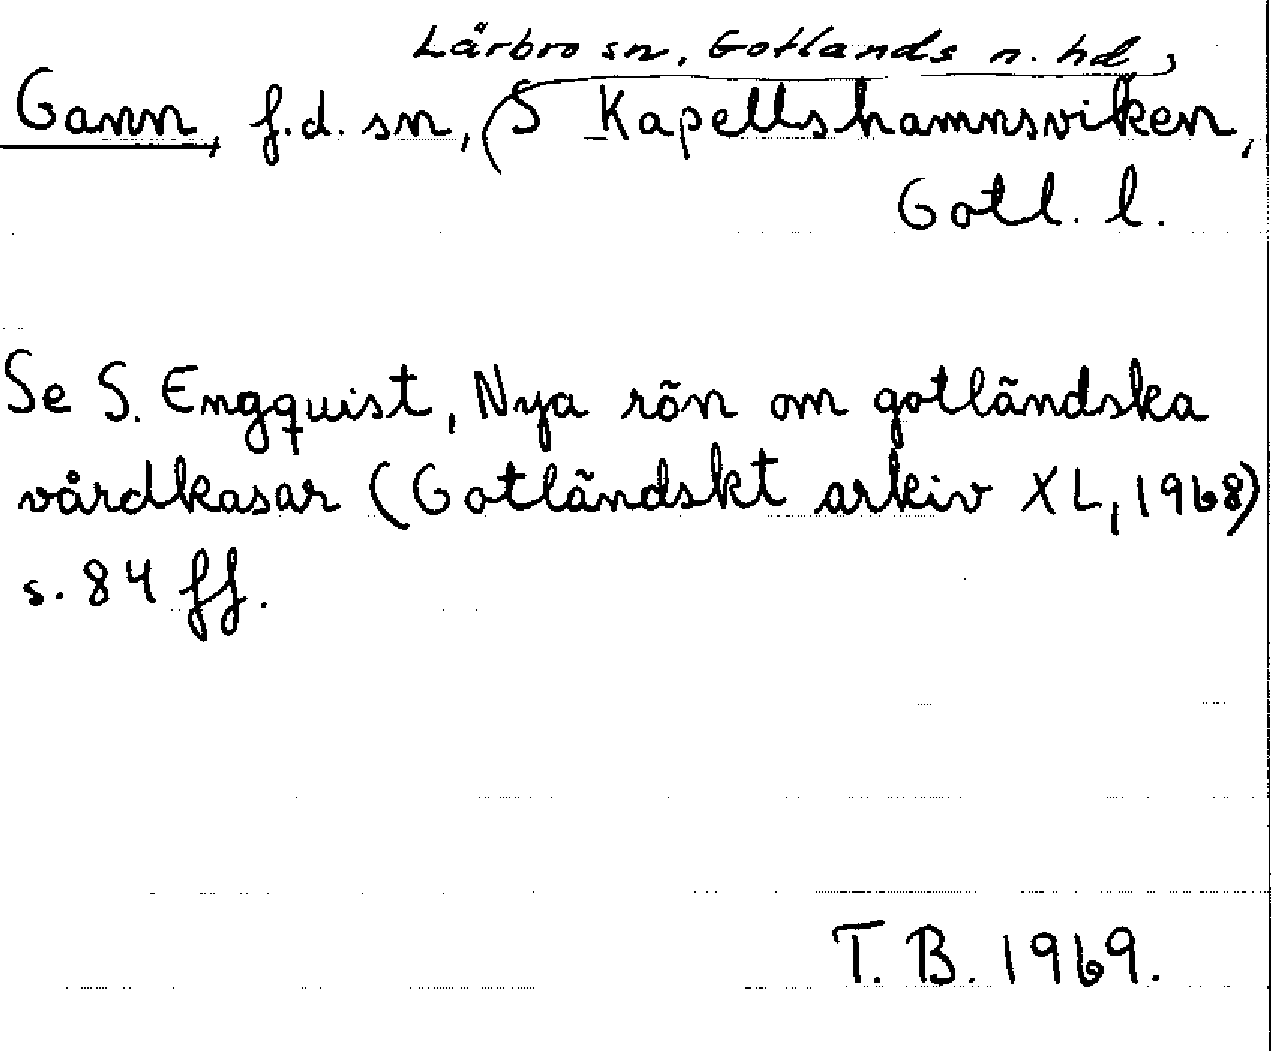 Lärbro sn, Gotlands n. hd,
Gann, f.d. sn, S Kapellshamnsviken,
Gotl. l.
Se S. Engquist, Nya rön om gotländska
vårdkasar (Gotländskt arkiv XL, 1968)
s. 84 ff.
T. B. 1969.